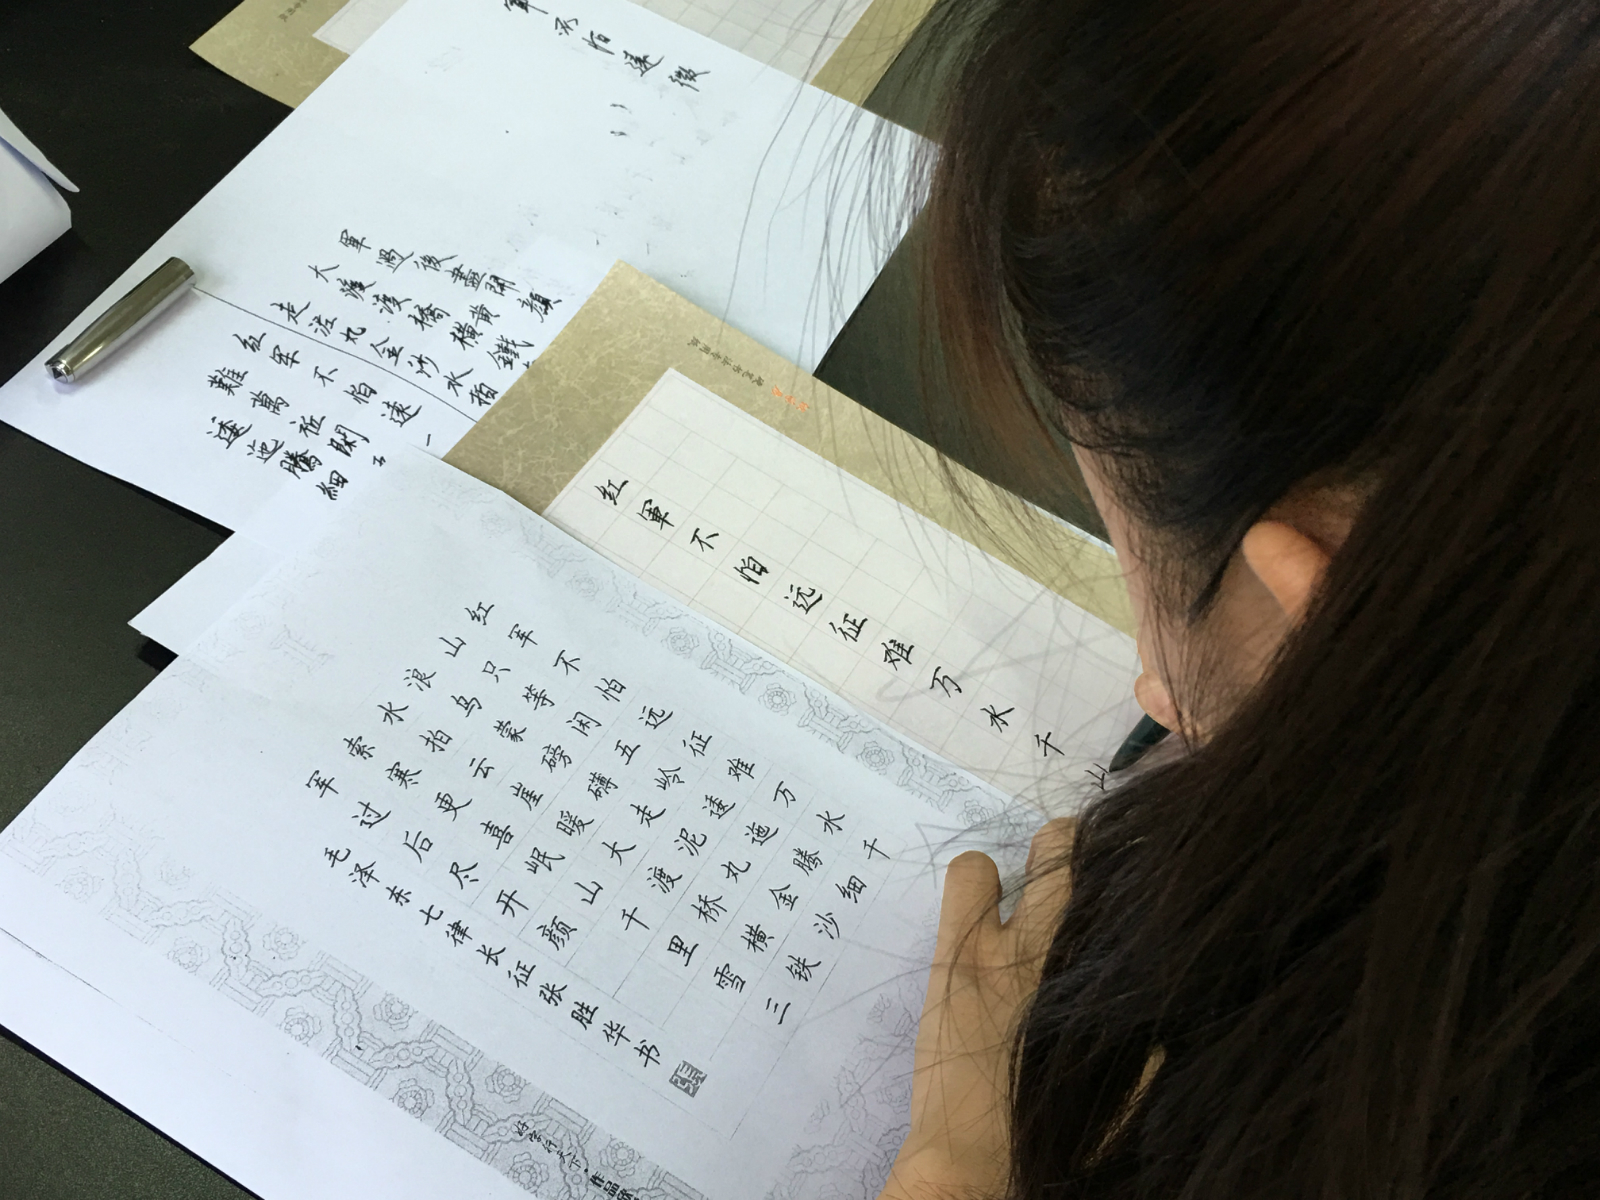 红軍不怕远征难万水千山
红军不怕远征难万水千
山只等闲五岭逶迤腾细
浪乌蒙磅礴走泥丸金沙
水拍云崖暖大渡桥横铁
索寒更喜岷山千里雪三
军过后尽开颜
毛泽东七律长征张胜华书
好字行天下·作品
軍不怕遠
軍過後盡開顏
大渡渡橋橫黄鐵
走泥丸金沙水拍
紅軍不怕遠一
難萬征閑五
逶迤騰細